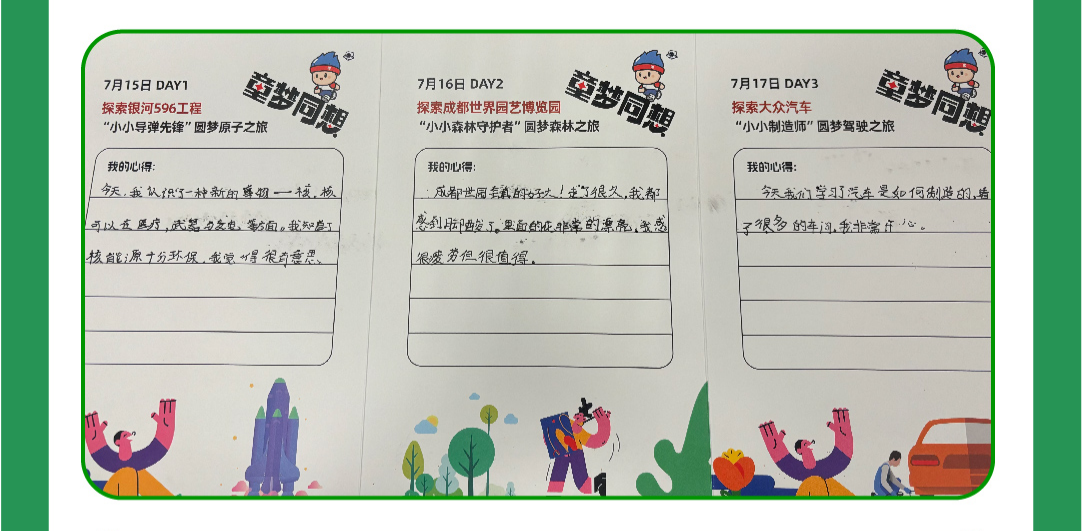 7月15日 DAY1
童梦同想
探索银河596工程
“小小导弹先锋”圆梦原子之旅
我的心得:
今天,我认识了一种新的事物——核,核
可以在医疗,武器,发电,等方面。我知道了
核能源十分环保,我觉得很有意思。
7月16日 DAY2
童梦同想
探索成都世界园艺博览园
“小小森林守护者”圆梦森林之旅
我的心得:
成都世园会真的好大!走了很久,我都
感到脚酸了。里面的花非常的漂亮,我感
很疲劳但很值得。
7月17日 DAY3
童梦同想
探索大众汽车
“小小制造师”圆梦驾驶之旅
我的心得:
今天我们学习了汽车是如何制造的,看
了很多的车间,我非常开心。